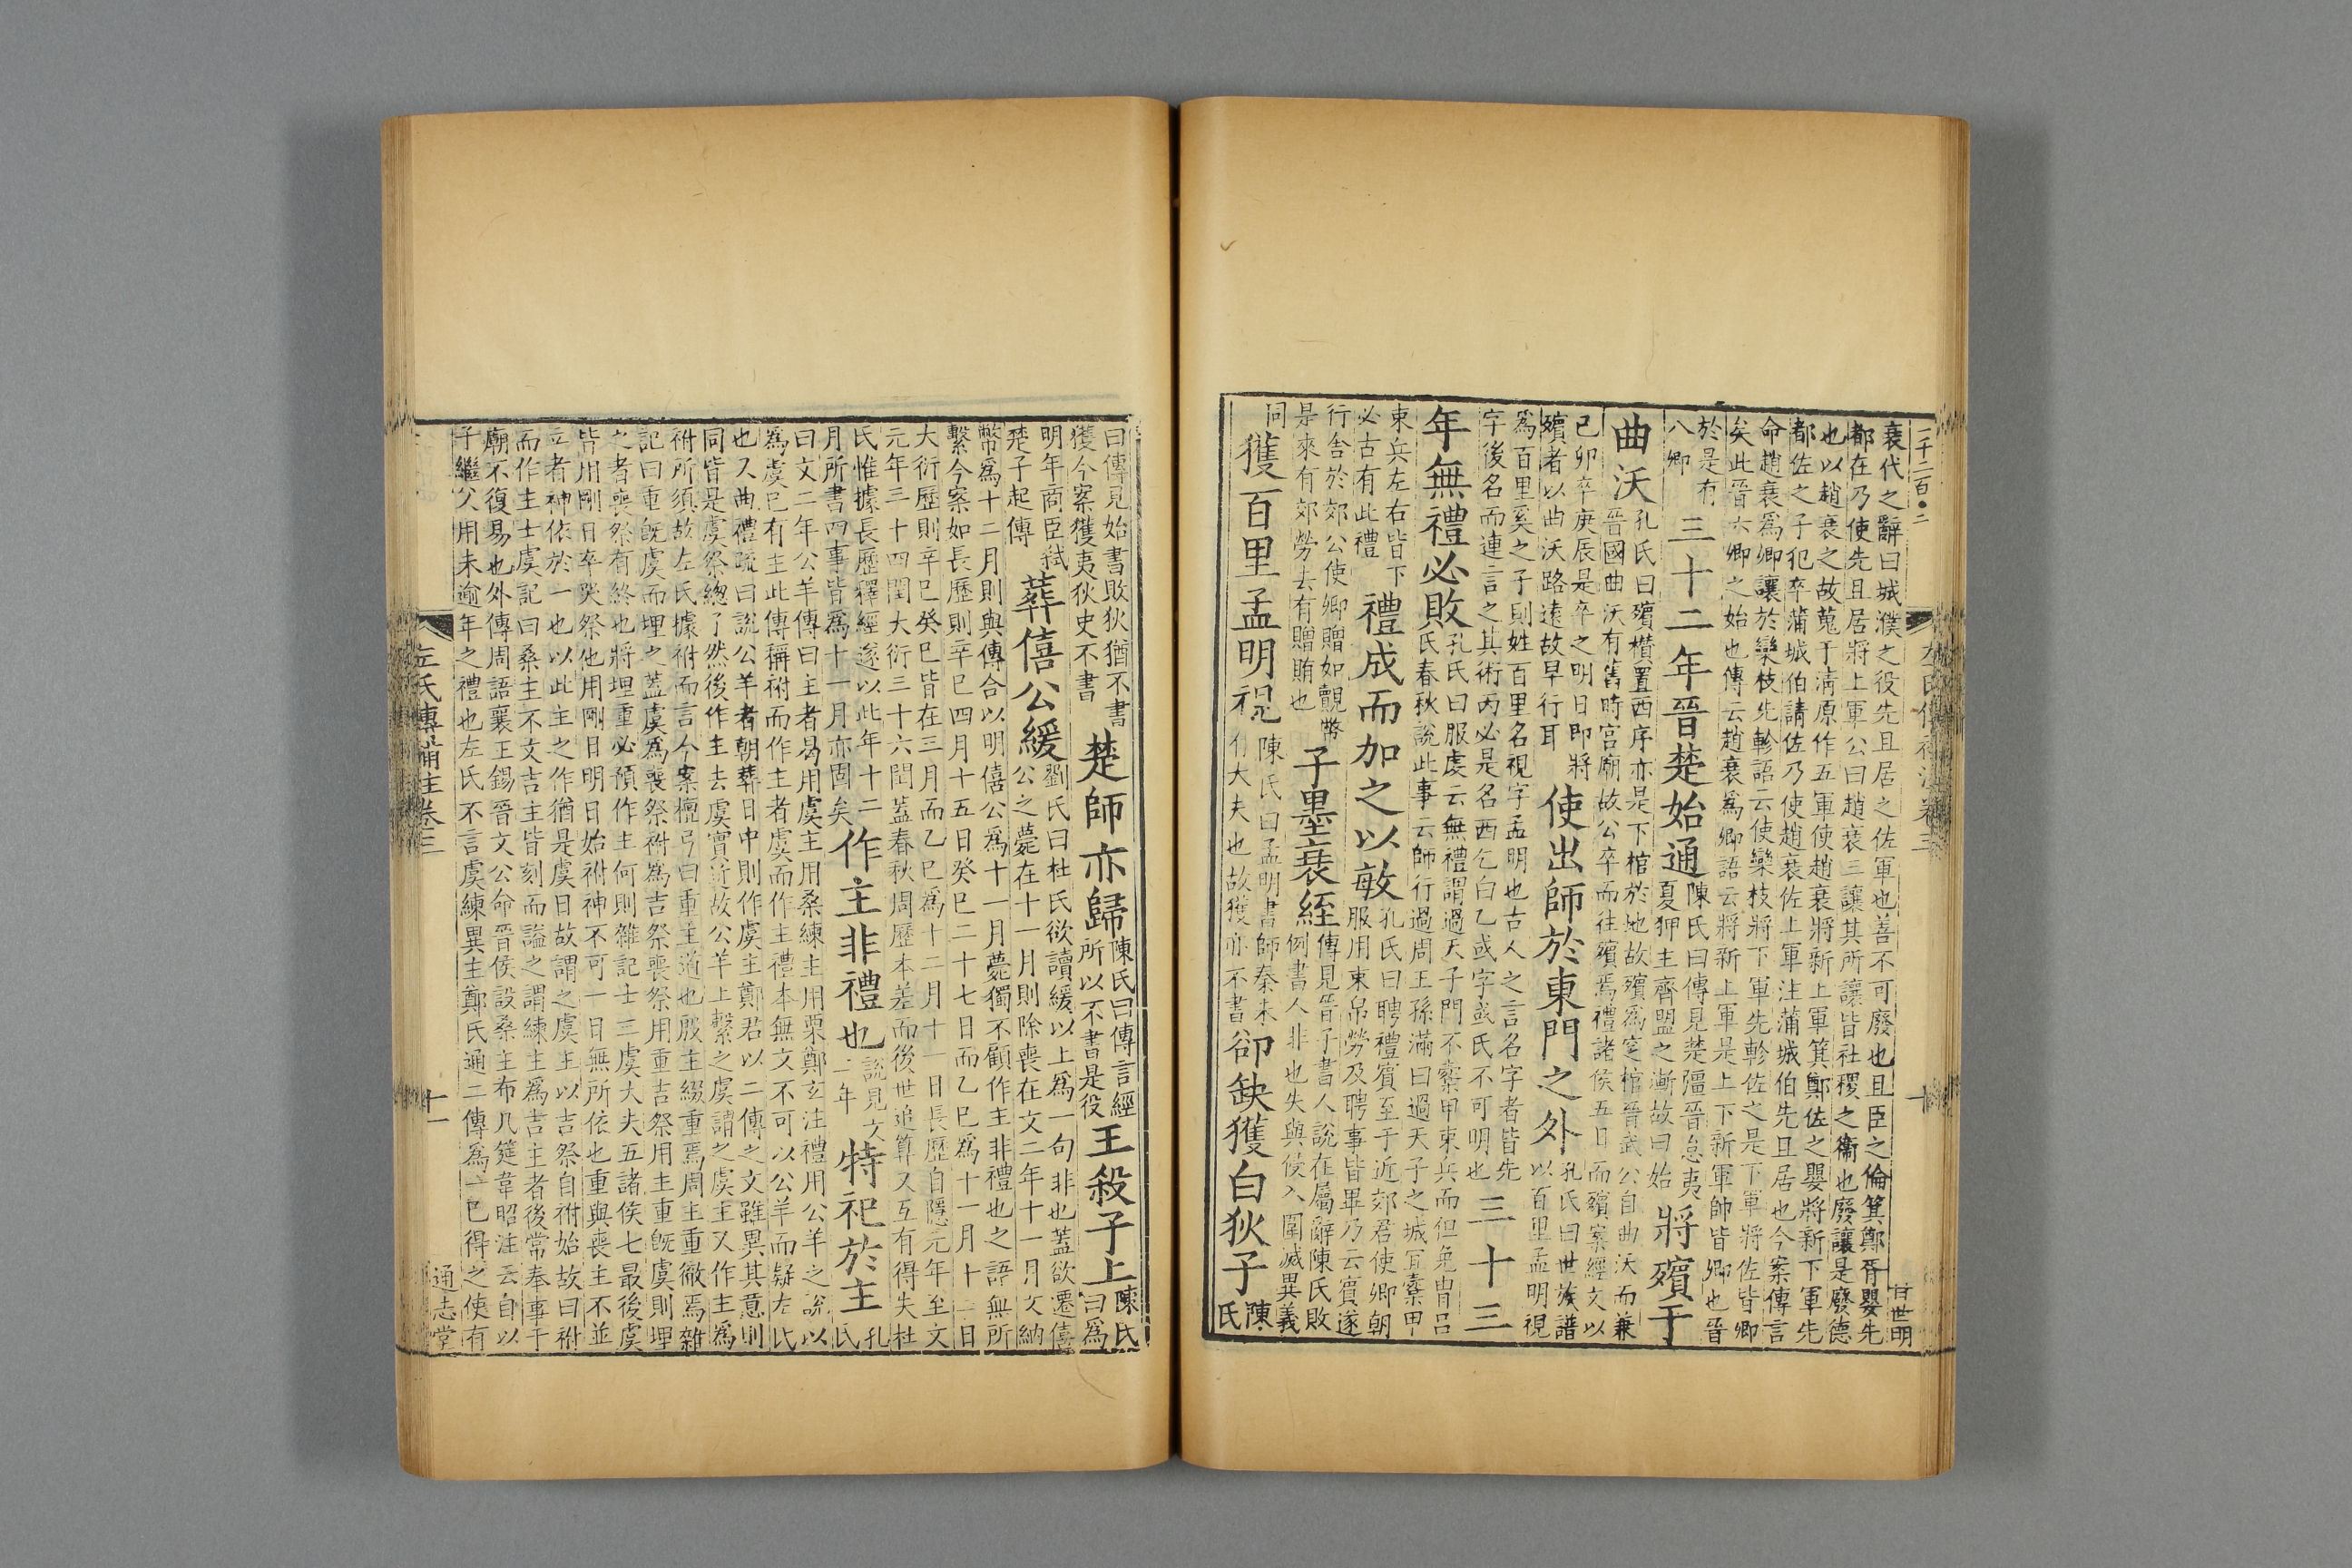 二千二百●二
左氏傳補注卷三
十
甘世明
衰代之辭曰城濮之役先且居之佐軍也善不可廢也且臣之倫箕鄭胥嬰先
都在乃使先且居將上軍公曰趙衰三讓其所讓皆社稷之衞也廢讓是廢德
也以趙衰之故蒐于清原作五軍使趙衰將新上軍箕鄭佐之嬰將新下軍先
都佐之子犯卒蒲城伯請佐乃使趙衰佐上軍注蒲城伯先且居也今案傳言
命趙衰爲卿讓於欒枝先軫語云使欒枝將下軍先軫佐之是下軍將佐皆卿
矣此晉六卿之始也傳云趙衰爲卿語云將新上軍是上下新軍帥皆卿也晉
於是有
八卿
三十二年晉楚始通
陳氏曰傳見楚彊晉怠夷
夏狎主齊盟之漸故曰始
將殯于
曲沃
孔氏曰殯欑置西序亦是下棺於地故殯爲窆棺晉武公自曲沃而兼
晉國曲沃有舊時宮廟故公卒而往殯焉禮諸侯五日而殯案經文以
己卯卒庚辰是卒之明日即將
殯者以曲沃路遠故早行耳
使出師於東門之外
孔氏曰世族譜
以百里孟明視
爲百里奚之子則姓百里名視字孟明也古人之言名字者皆先
字後名而連言之其術丙必是名西乞白乙或字或氏不可明也
三十三
年無禮必敗
孔氏曰服虔云無禮謂過天子門不櫜甲束兵而但免胄呂
氏春秋說此事云師行過周王孫滿曰過天子之城宜櫜甲
束兵左右皆下
必古有此禮
禮成而加之以敏
孔氏曰聘禮賓至于近郊君使卿朝
服用束帛勞及聘事皆畢乃云賓遂
行舍於郊公使卿贈如覿幣
是來有郊勞去有贈賄也
子墨衰絰
傳見晉子書人說在屬辭陳氏敗
例書人非也失與侯入圍滅異義
同
獲百里孟明視
陳氏曰孟明書師秦未
有大夫也故獲亦不書
郤缺獲白狄子
陳
氏
曰傳見始書敗狄猶不書
獲今案獲夷狄史不書
楚師亦歸
陳氏曰傳言經
所以不書是役
王殺子上
陳氏
曰爲
明年商臣弑
楚子起傳
葬僖公緩
劉氏曰杜氏欲讀緩以上爲一句非也蓋欲遷僖
公之薨在十一月則除喪在文二年十一月文納
幣爲十二月則與傳合以明僖公爲十一月薨獨不顧作主非禮也之語無所
繫今案如長歷則辛巳四月十五日癸巳二十七日而乙巳爲十一月十二日
大衍歷則辛巳癸巳皆在三月而乙巳爲十二月十一日長歷自隱元年至文
元年三十四閏大衍三十六閏蓋春秋周歷本差而後世追算又互有得失杜
氏惟據長歷釋經遂以此年十二
月所書四事皆爲十一月亦固矣
作主非禮也
說見文
二年
特祀於主
孔
氏
曰文二年公羊傳曰主者曷用虞主用桑練主用栗鄭玄注禮用公羊之說以
爲虞已有主此傳稱祔而作主者虞而作主禮本無文不可以公羊而疑左氏
也又曲禮疏曰說公羊者朝葬日中則作虞主鄭君以二傳之文雖異其意則
同皆是虞祭總了然後作主去虞實近故公羊上繫之虞謂之虞主又作主爲
祔所須故左氏據祔而言今案檀弓曰重主道也殷主綴重焉周主重徹焉雜
記曰重旣虞而埋之蓋虞爲喪祭祔爲吉祭喪祭用重吉祭用主重旣虞則埋
之者喪祭有終也將埋重必預作主何則雜記士三虞大夫五諸侯七最後虞
皆用剛日卒哭祭他用剛日明日始祔神不可一日無所依也重與喪主不並
立者神依於一也以此主之作猶是虞日故謂之虞主以吉祭自祔始故曰祔
而作主士虞記曰桑主不文吉主皆刻而謚之謂練主爲吉主者後常奉事于
廟不復易也外傳周語襄王錫晉文公命晉侯設桑主布几筵韋昭注云自以
子繼父用未逾年之禮也左氏不言虞練異主鄭氏通二傳爲一已得之使有
左氏傳補注卷三
十一
通志堂